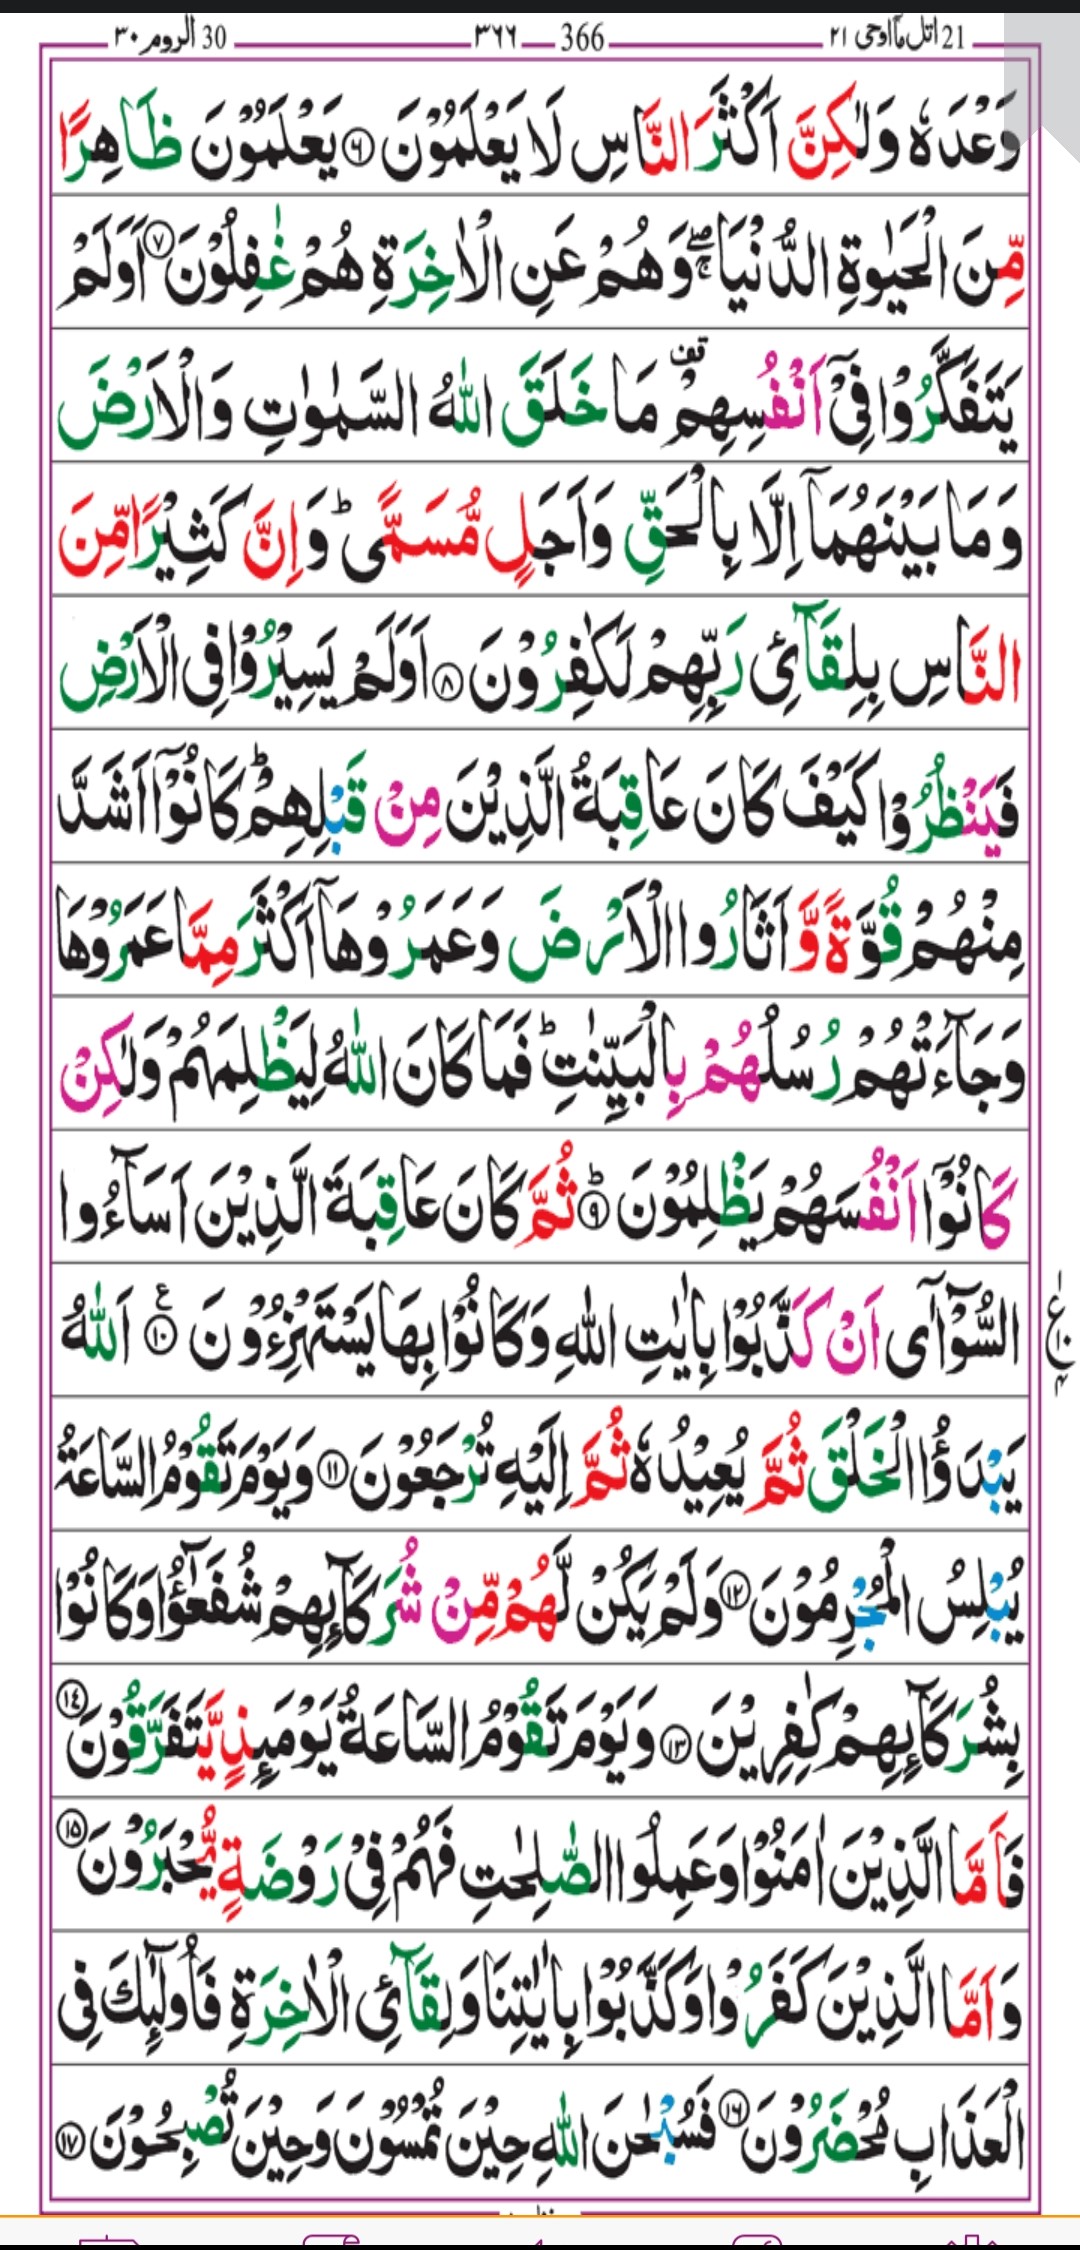 21 اتل ماۤ اوحی ۲۱ 366 ۳۶۶ 30 الروم ۳۰
وَعْدَهٗ وَلٰكِنَّ اَكْثَرَ النَّاسِ لَا يَعْلَمُوْنَ ۶ يَعْلَمُوْنَ ظَاهِرًا
مِّنَ الْحَيٰوةِ الدُّنْيَا ۖۚ وَهُمْ عَنِ الْاٰخِرَةِ هُمْ غٰفِلُوْنَ ۷ اَوَلَمْ
يَتَفَكَّرُوْا فِىْۤ اَنْفُسِهِمْ قف مَا خَلَقَ اللّٰهُ السَّمٰوٰتِ وَالْاَرْضَ
وَمَا بَيْنَهُمَاۤ اِلَّا بِالْحَقِّ وَاَجَلٍ مُّسَمًّى ؕ وَاِنَّ كَثِيْرًا مِّنَ
النَّاسِ بِلِقَآئِ رَبِّهِمْ لَكٰفِرُوْنَ ۸ اَوَلَمْ يَسِيْرُوْا فِى الْاَرْضِ
فَيَنْظُرُوْا كَيْفَ كَانَ عَاقِبَةُ الَّذِيْنَ مِنْ قَبْلِهِمْ ؕ كَانُوْۤا اَشَدَّ
مِنْهُمْ قُوَّةً وَّاَثَارُوا الْاَرْضَ وَعَمَرُوْهَاۤ اَكْثَرَ مِمَّا عَمَرُوْهَا
وَجَآءَتْهُمْ رُسُلُهُمْ بِالْبَيِّنٰتِ ؕ فَمَا كَانَ اللّٰهُ لِيَظْلِمَهُمْ وَلٰكِنْ
كَانُوْۤا اَنْفُسَهُمْ يَظْلِمُوْنَ ؕ ۹ ثُمَّ كَانَ عَاقِبَةَ الَّذِيْنَ اَسَآءُوا
السُّوْٓاٰۤى اَنْ كَذَّبُوْا بِاٰيٰتِ اللّٰهِ وَكَانُوْا بِهَا يَسْتَهْزِءُوْنَ ۱۰ ع اَللّٰهُ
يَبْدَؤُا الْخَلْقَ ثُمَّ يُعِيْدُهٗ ثُمَّ اِلَيْهِ تُرْجَعُوْنَ ۱۱ وَيَوْمَ تَقُوْمُ السَّاعَةُ
يُبْلِسُ الْمُجْرِمُوْنَ ۱۲ وَلَمْ يَكُنْ لَّهُمْ مِّنْ شُرَكَآئِهِمْ شُفَعٰٓؤُا وَكَانُوْا
بِشُرَكَآئِهِمْ كٰفِرِيْنَ ۱۳ وَيَوْمَ تَقُوْمُ السَّاعَةُ يَوْمَئِذٍ يَّتَفَرَّقُوْنَ ۱۴
فَاَمَّا الَّذِيْنَ اٰمَنُوْا وَعَمِلُوا الصّٰلِحٰتِ فَهُمْ فِىْ رَوْضَةٍ يُّحْبَرُوْنَ ۱۵
وَاَمَّا الَّذِيْنَ كَفَرُوْا وَكَذَّبُوْا بِاٰيٰتِنَا وَلِقَآئِ الْاٰخِرَةِ فَاُولٰٓئِكَ فِى
الْعَذَابِ مُحْضَرُوْنَ ۱۶ فَسُبْحٰنَ اللّٰهِ حِيْنَ تُمْسُوْنَ وَحِيْنَ تُصْبِحُوْنَ ۱۷